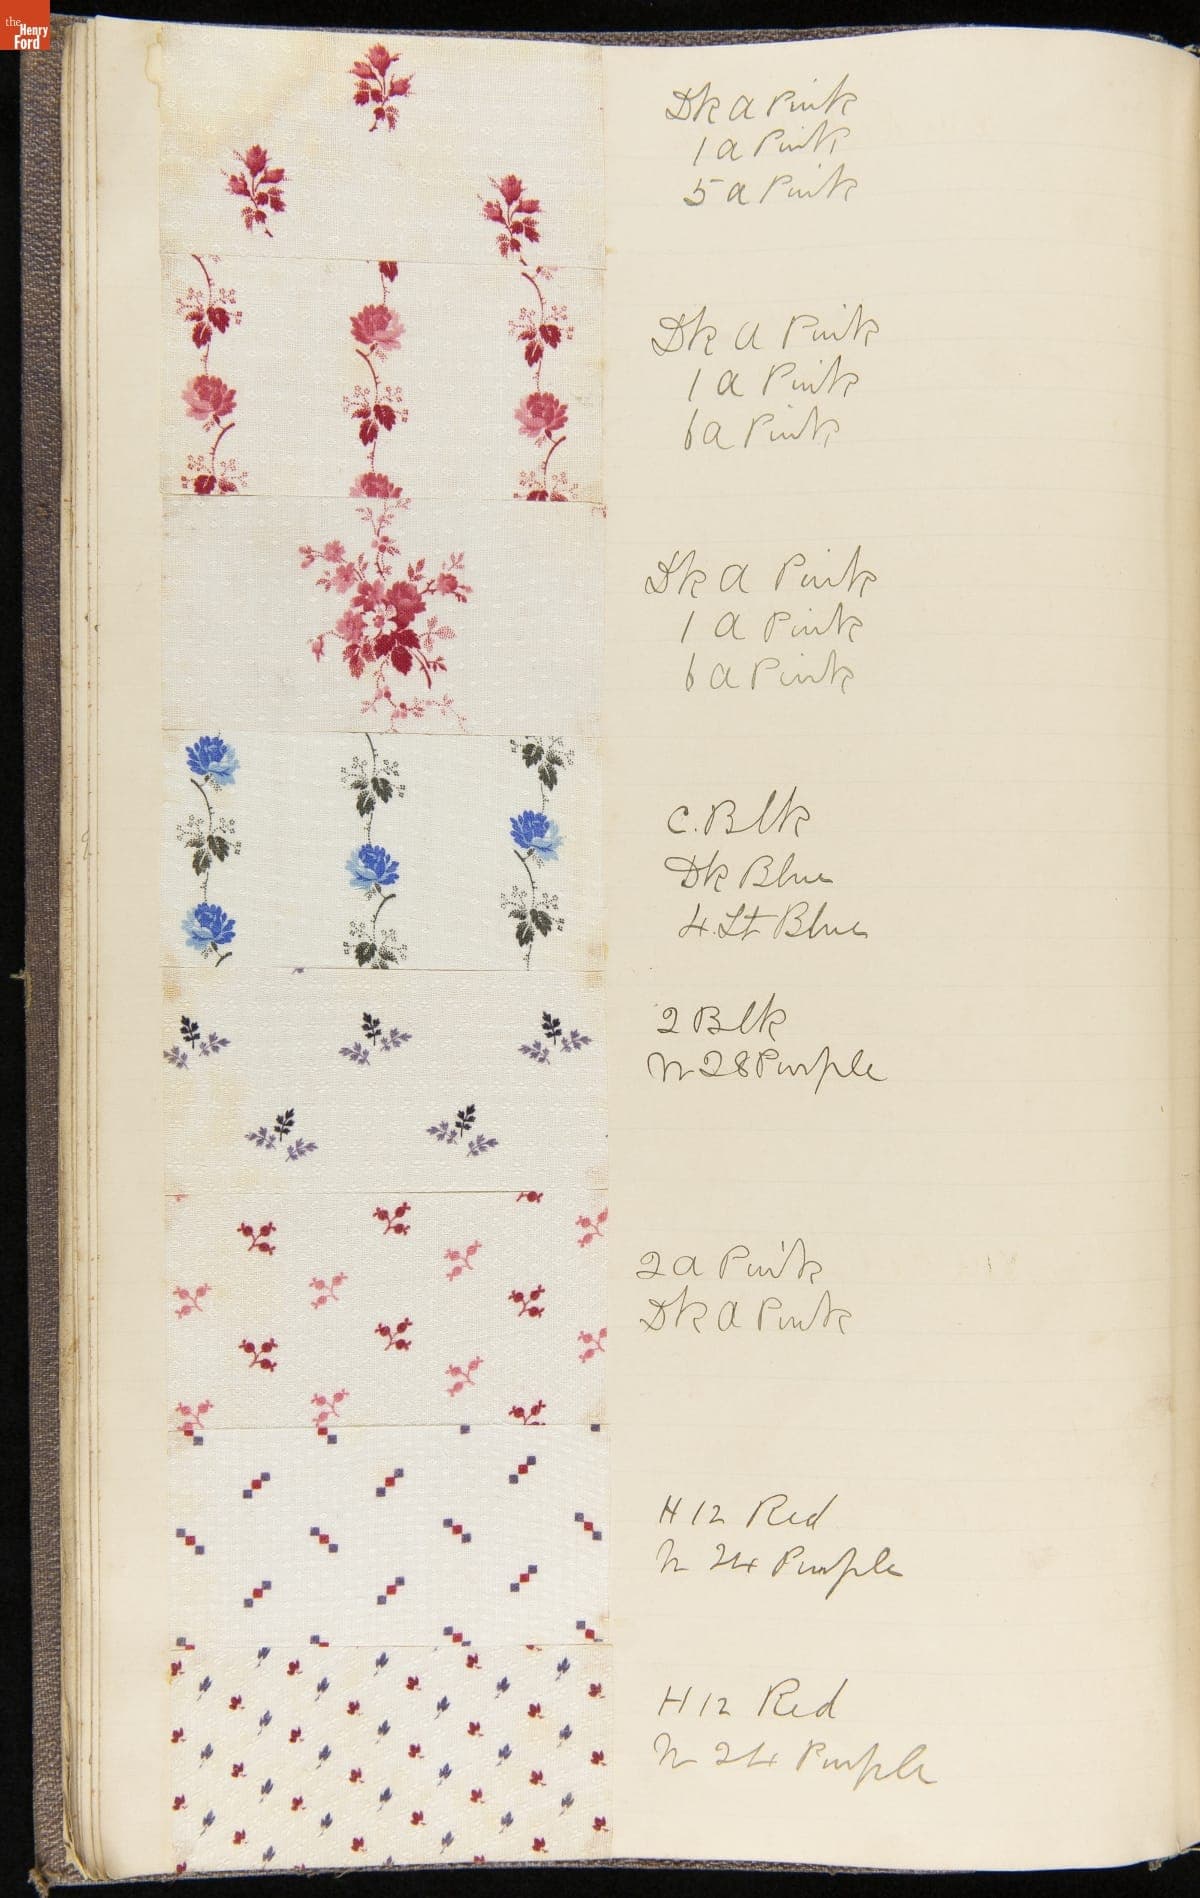 the
Henry
Ford
Dk a Pink
1 a Pink
5 a Pink
Dk a Pink
1 a Pink
6 a Pink
Dk a Pink
1 a Pink
6 a Pink
C. Blk
Dk Blue
4 Lt Blue
2 Blk
N 28 Purple
2 a Pink
Dk a Pink
H 12 Red
N 24 Purple
H 12 Red
N 24 Purple